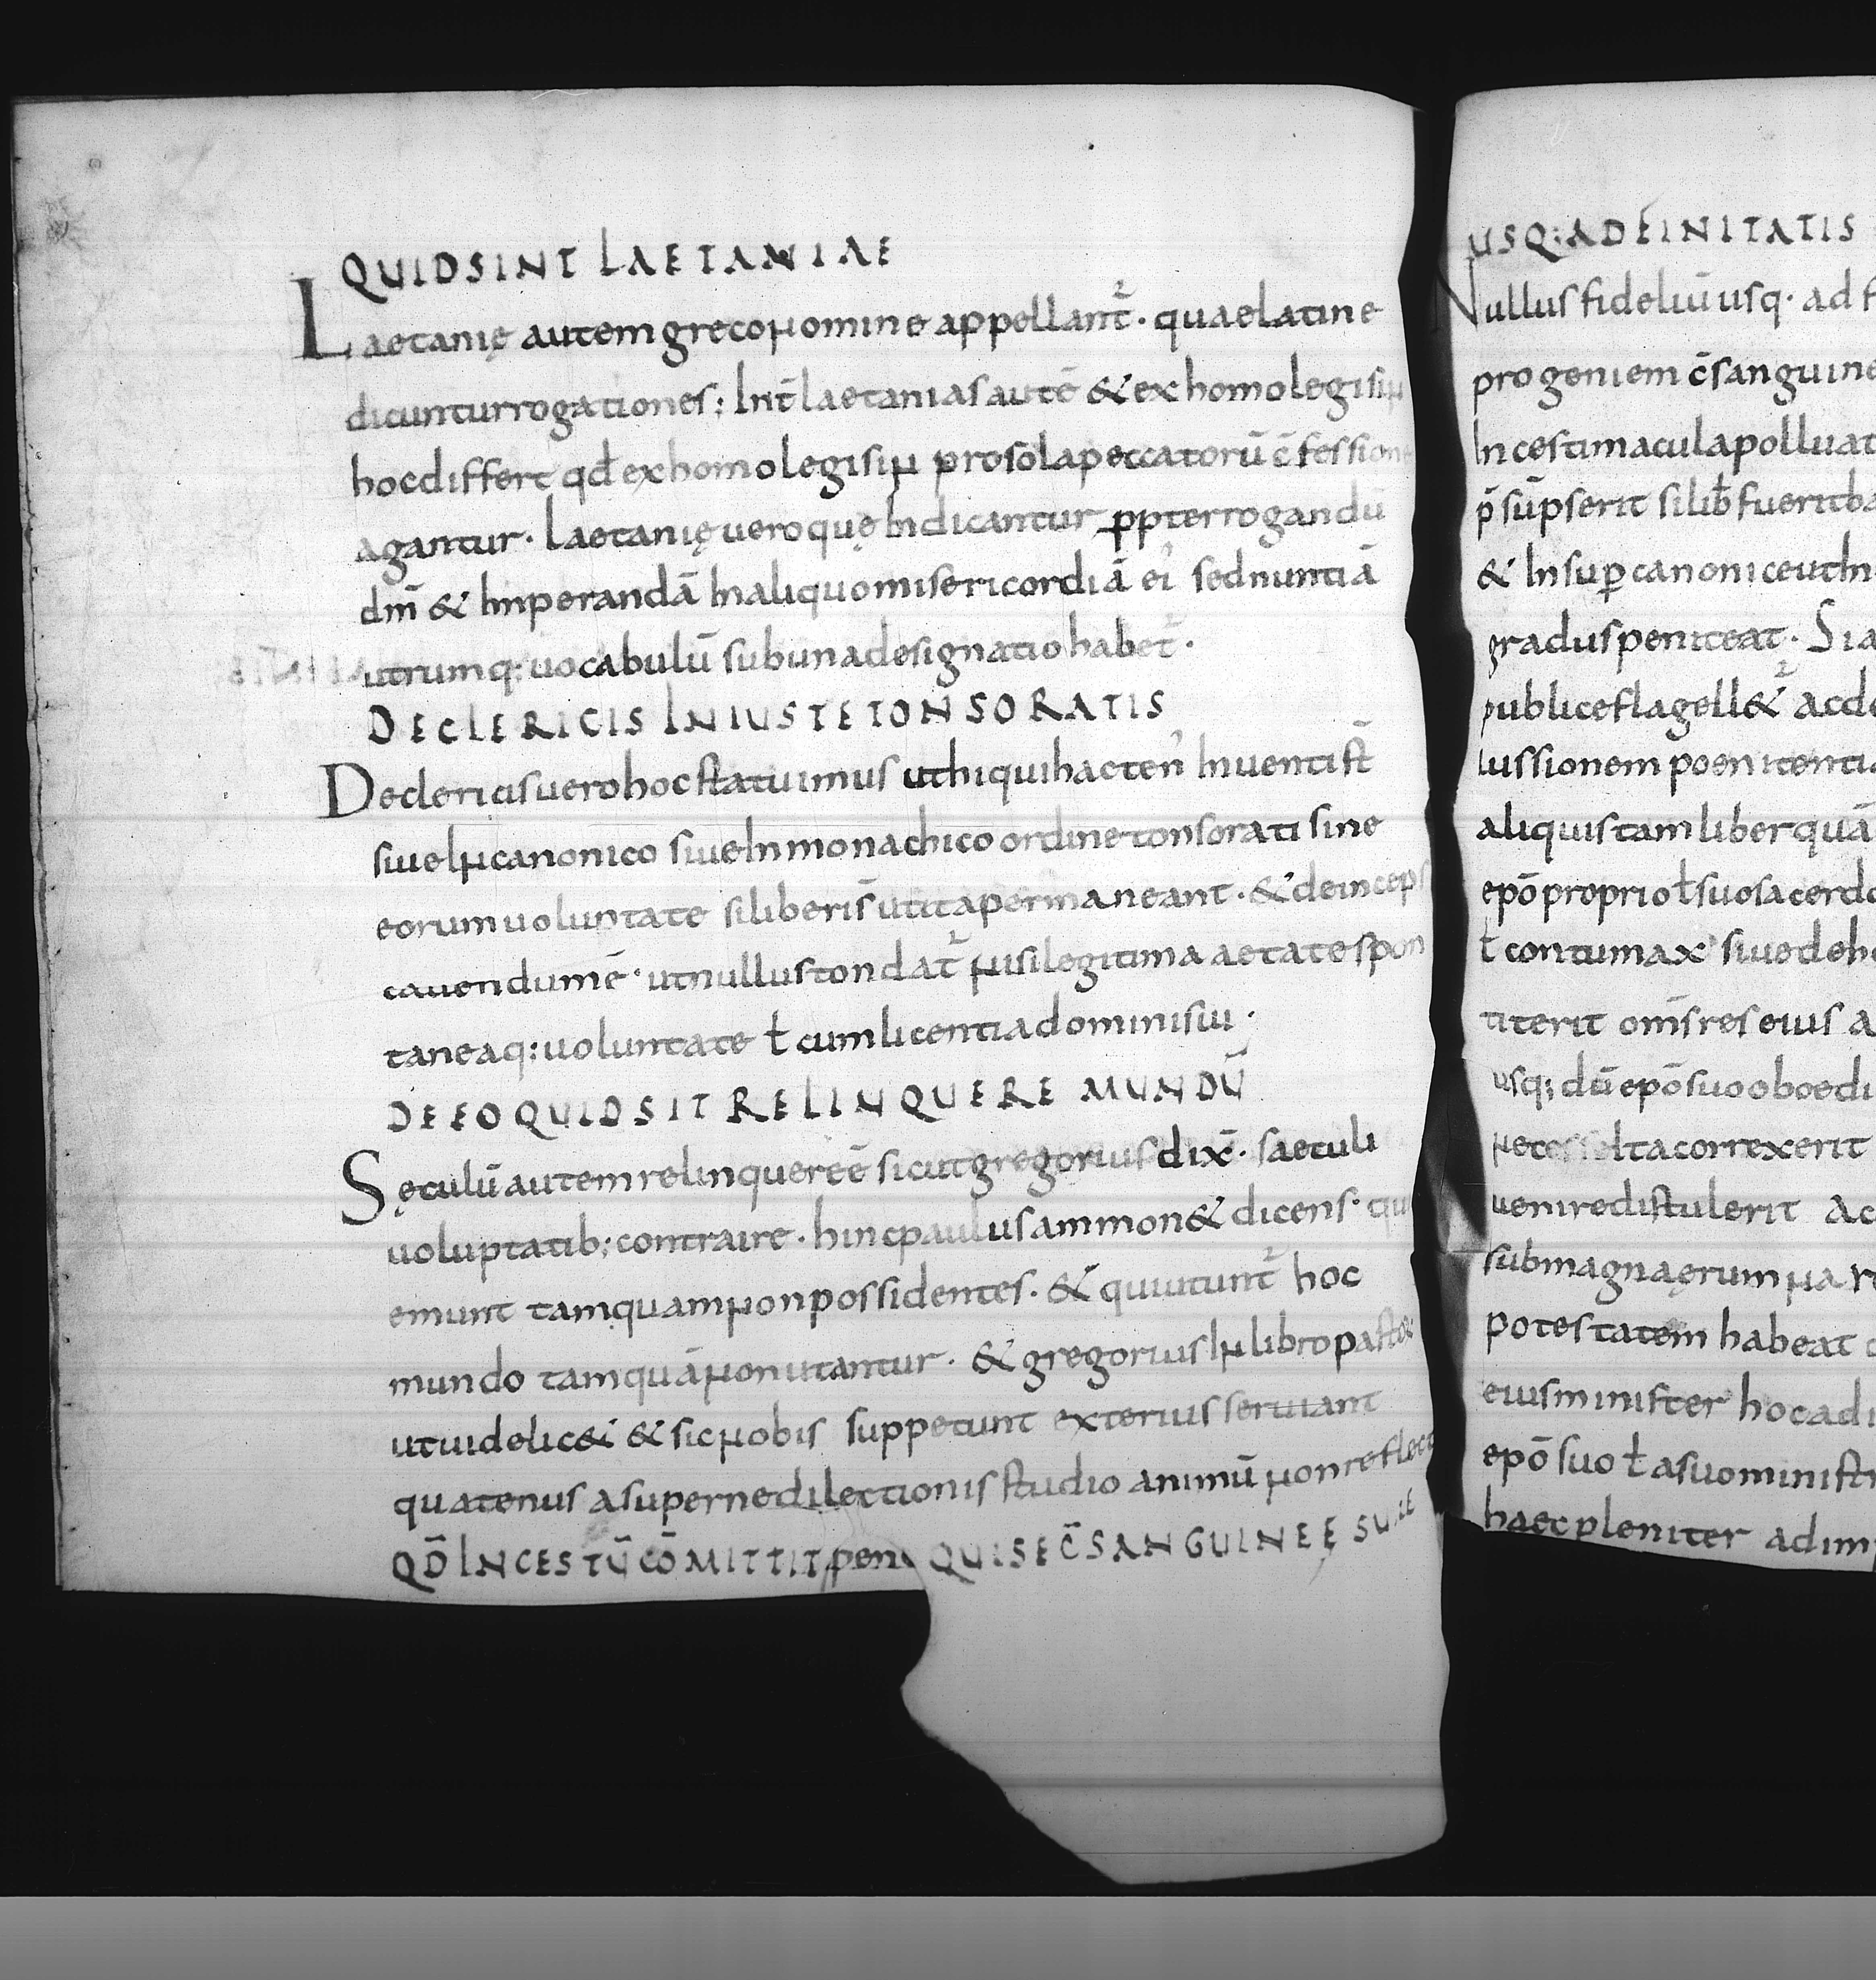 QUID SINT LAETANIAE
Laetanię autem greco nomine appellant̄ · quae latine
dicuntur rogationes ; Int̄ laetanias autē & exhomolegisin
hoc differt qd̄ exhomolegisin pro sola peccatorū c̄fession
agantur · Laetanię uero quę Indicantur ꝓpter rogandū
dm̄ & Inperandā In aliquo misericordiā ei' sed nunti ā
utrumq: uocabulū sub una designatio habet̄ ·
DE CLERICIS INIUSTE TONSORATIS
De clericis uero hoc statuimus ut hi qui hacten' Inuenti st̄
siue In canonico siue In monachico ordine tonsorati sine
eorum uoluntate si liberi s̄ ut ita permaneant · & deinceps
cauendum ē · ut nullus tondat̄ nisi legitima aetate spon
taneaq: uoluntate ł cum licentia domini sui ·
DE EO QUID SIT RELINQUERE MUNDŪ
Sęculū autem relinquere ē sicut gregorius dix̄ · saeculi
uoluptatib; contraire · hinc paulus ammon& dicens · qu
emunt tamquam non possidentes · & qui utunt̄ hoc
mundo tamquā non utantur · & gregorius In libro pasto
ut uidelic& & sic nobis suppetunt exterius seruiant
quatenus a superne dilectionis studio animū non reflect
QD̄ INCESTŪ CŌMITTIT QUI SE C̄SANGUINEĘ SUAE
USQ: AD FINITATIS
Nullus fideliū usq · ad
progeniem c̄sanguine
Incesti macula polluat
p̄sūpserit si lib̄ fuerit
& Insuꝑ canonice ut In
gradus peniteat · Si
publice flagell&̄ ac de
iussionem poenitentia
aliquis tam liber quā
epō proprio ł suo sacerdo
ł contumax siue de
titerit om̄s res eius
usq; dū epō suo oboedi
Ita correxerit
uenire distulerit
sub magna ęrumna
potestatem habeat
eius minister hoc
epō suo ł a suo ministr
haec pleniter adim